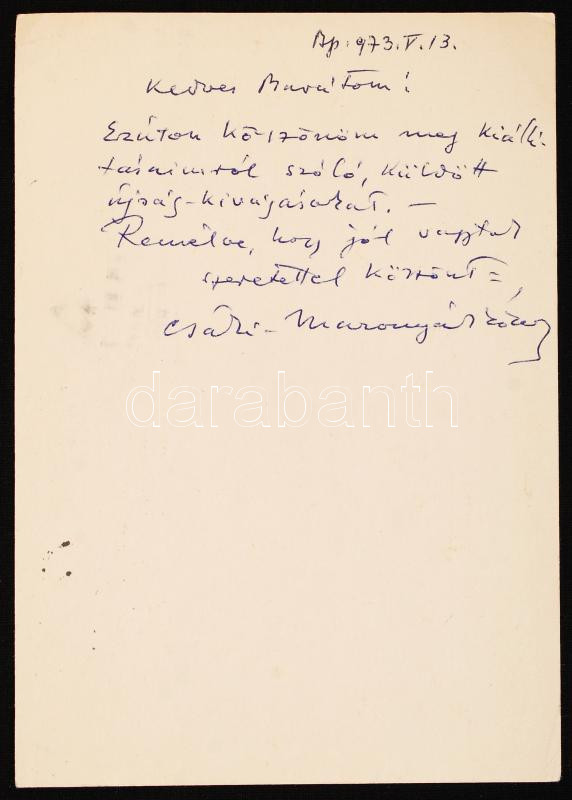 Bp. 973. V. 13.
Kedves Barátom!
Ezúton köszönöm meg kiállí-
tásaimról szóló, küldött
újság-kivágásokat. –
Remélve, hogy jól vagytok
szeretettel köszönt =,
Csáki-Maronyák József
darabanth